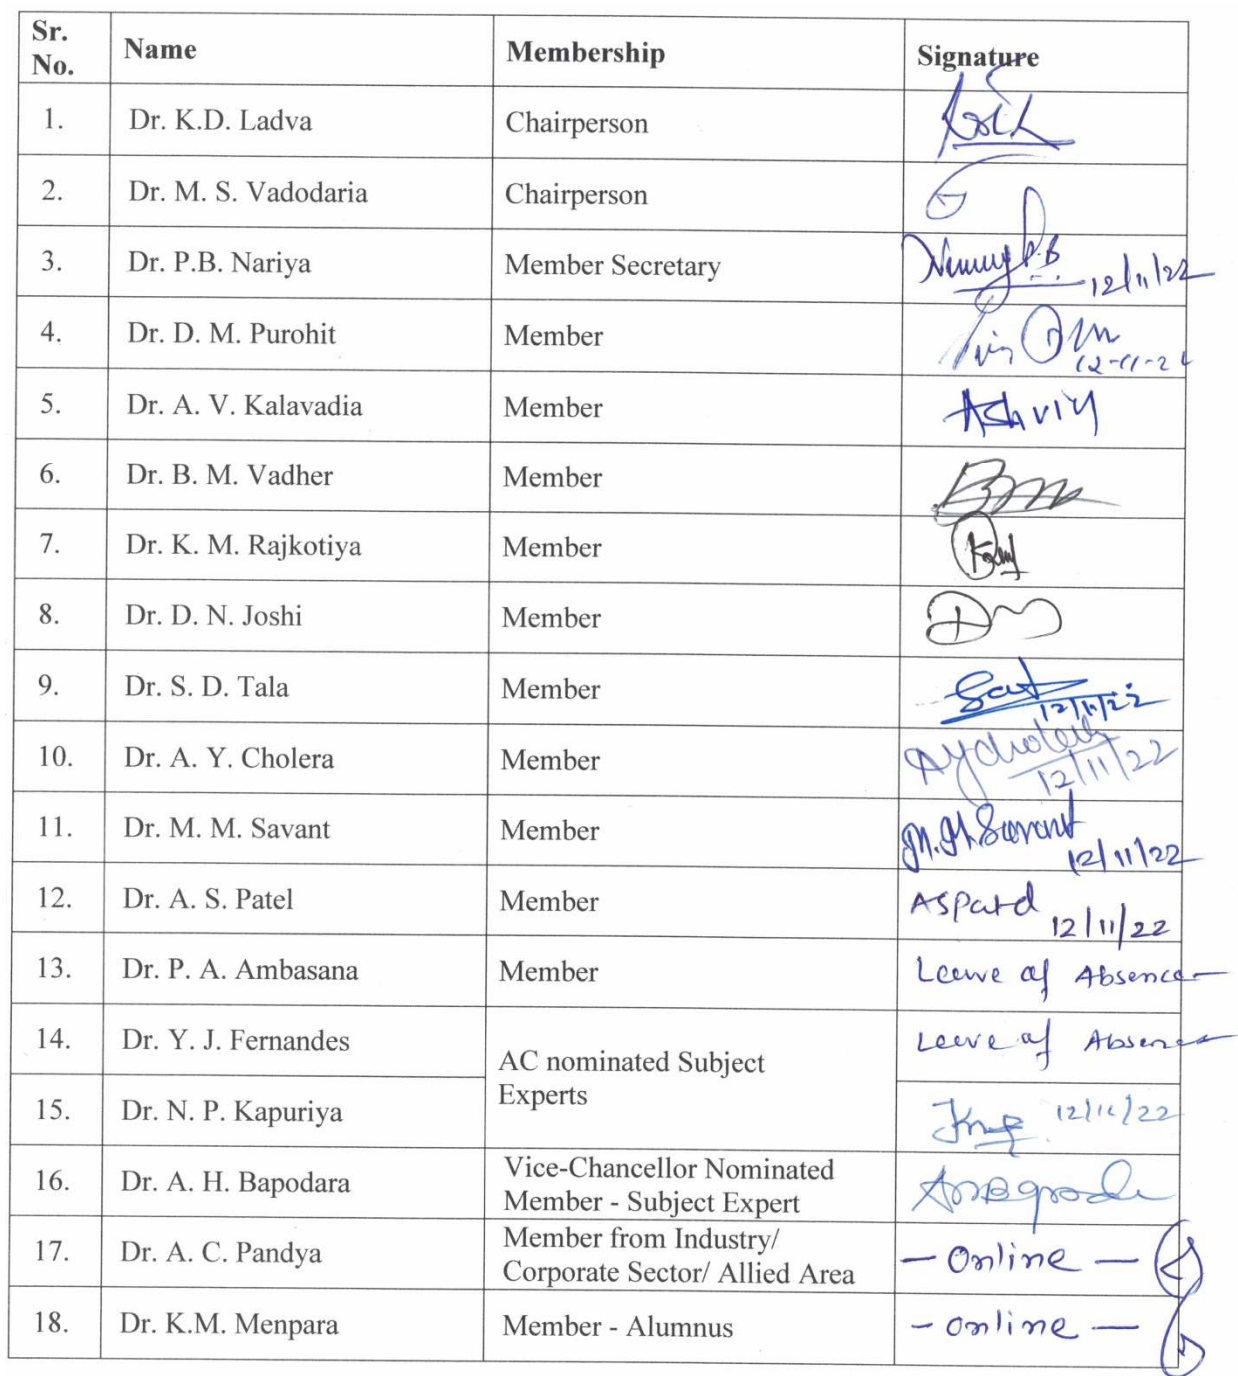 Sr. No. Name Membership Signature
1. Dr. K.D. Ladva Chairperson
2. Dr. M. S. Vadodaria Chairperson
3. Dr. P.B. Nariya Member Secretary P.B 12/11/22
4. Dr. D. M. Purohit Member 12-11-22
5. Dr. A. V. Kalavadia Member Ashvin
6. Dr. B. M. Vadher Member
7. Dr. K. M. Rajkotiya Member
8. Dr. D. N. Joshi Member
9. Dr. S. D. Tala Member 12/11/22
10. Dr. A. Y. Cholera Member Aycholera 12/11/22
11. Dr. M. M. Savant Member M.M. Savant 12/11/22
12. Dr. A. S. Patel Member ASPatel 12/11/22
13. Dr. P. A. Ambasana Member Leave of Absence
14. Dr. Y. J. Fernandes AC nominated Subject Experts Leave of Absence
15. Dr. N. P. Kapuriya 12/11/22
16. Dr. A. H. Bapodara Vice-Chancellor Nominated
Member - Subject Expert
17. Dr. A. C. Pandya Member from Industry/
Corporate Sector/ Allied Area - Online -
18. Dr. K.M. Menpara Member - Alumnus - online -